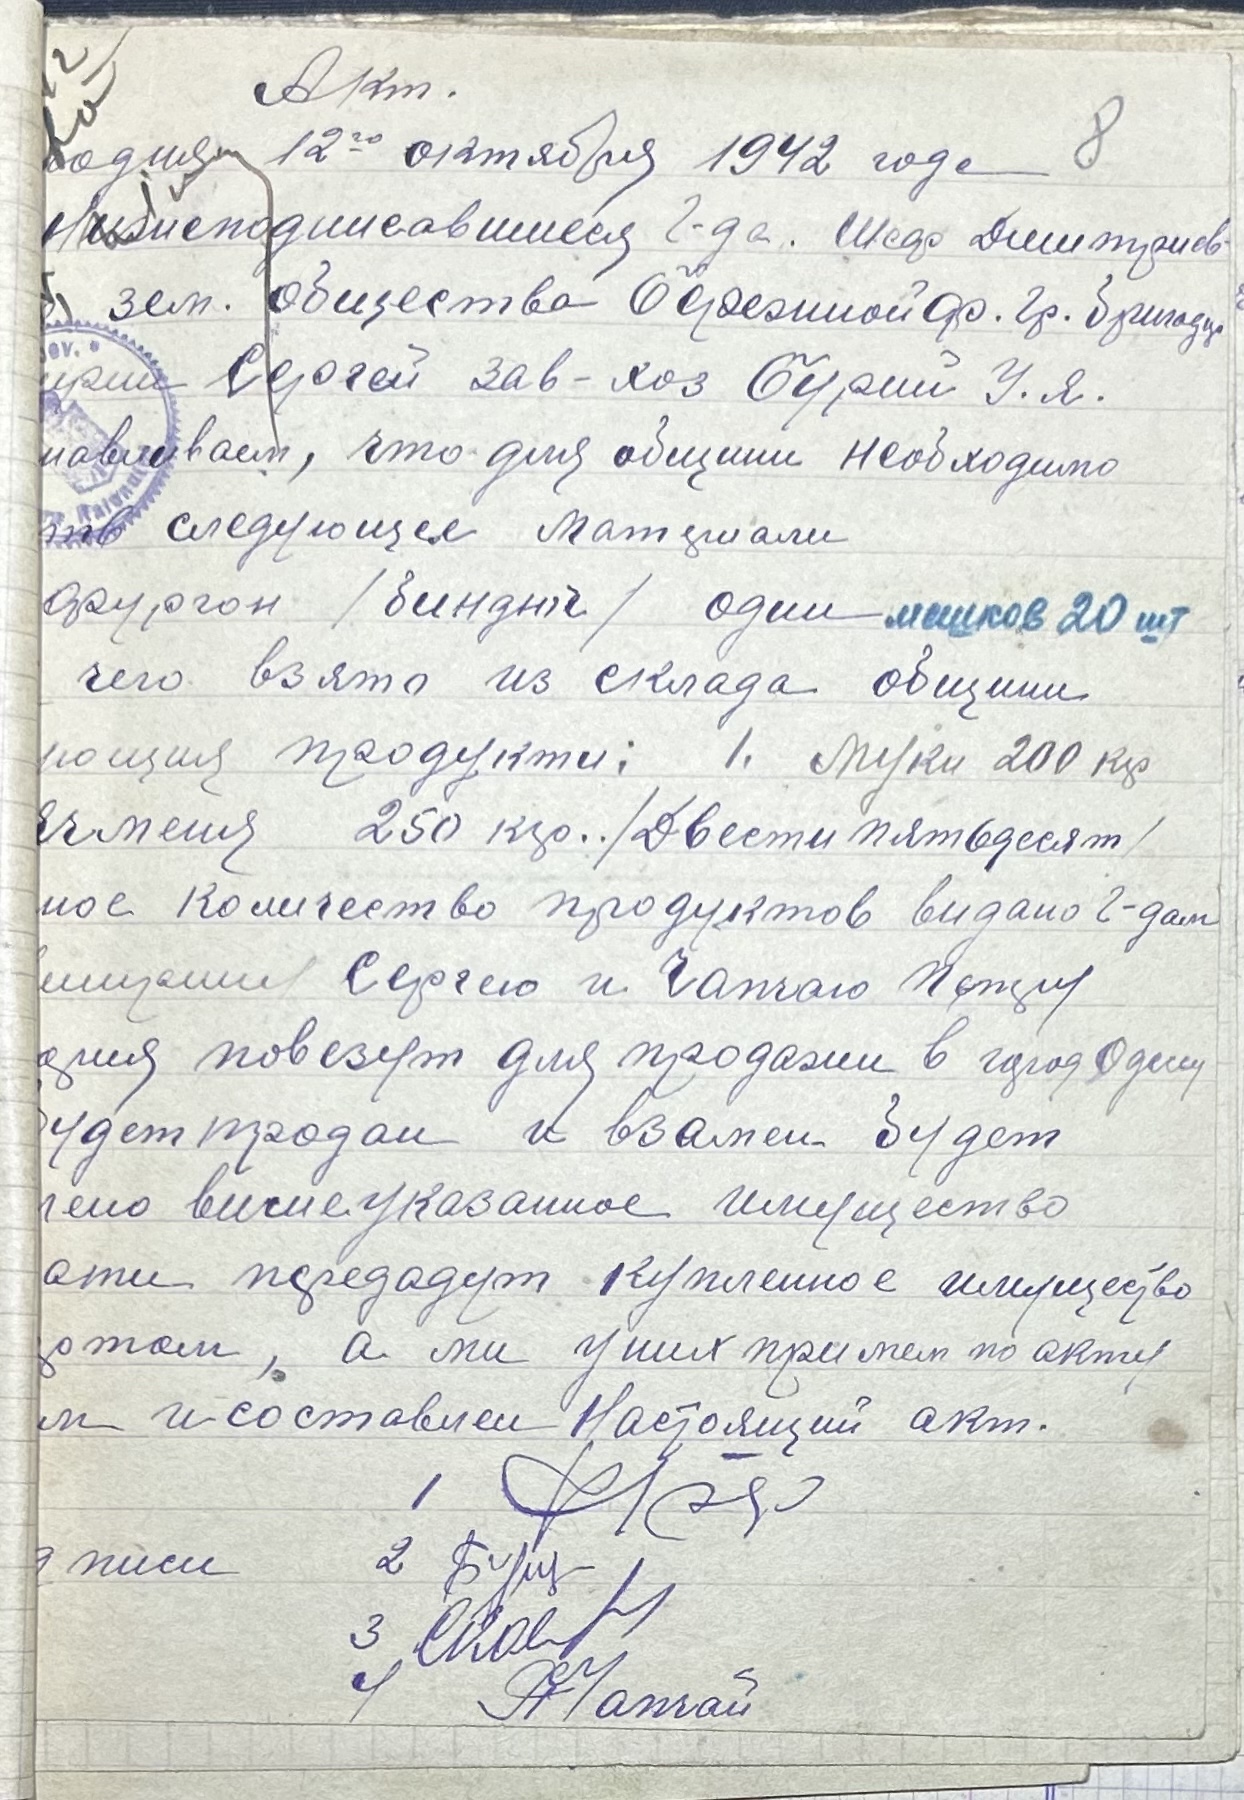 Акт.
водня 12го октября 1942 года 8
Нижеподписавшиеся г-да. Шеф Дмитриев-
зем. общества Бережной Ф. Гр. бригадир
Сергей зав-хоз Бурий У. Я.
навливаем, что для общини необходимо
следующее материали
фургон /биндюг/ один мешков 20 шт
чего взято из склада общини
ющия продукти: 1. Муки 200 кгр
ячменя 250 кгр../Двести пятьдесят/
ное количество продуктов видано г-дам
Сергею и Чапчаю Петру
повезут для продажи в город Одессу
будет продан и взамен будет
чено вишеуказанное имущество
ати передадут купленное имущество
отам, а ми у них примем по акту
м и составлен настоящий акт.
1
дписи 2 Бурий
3
4 Чапчай